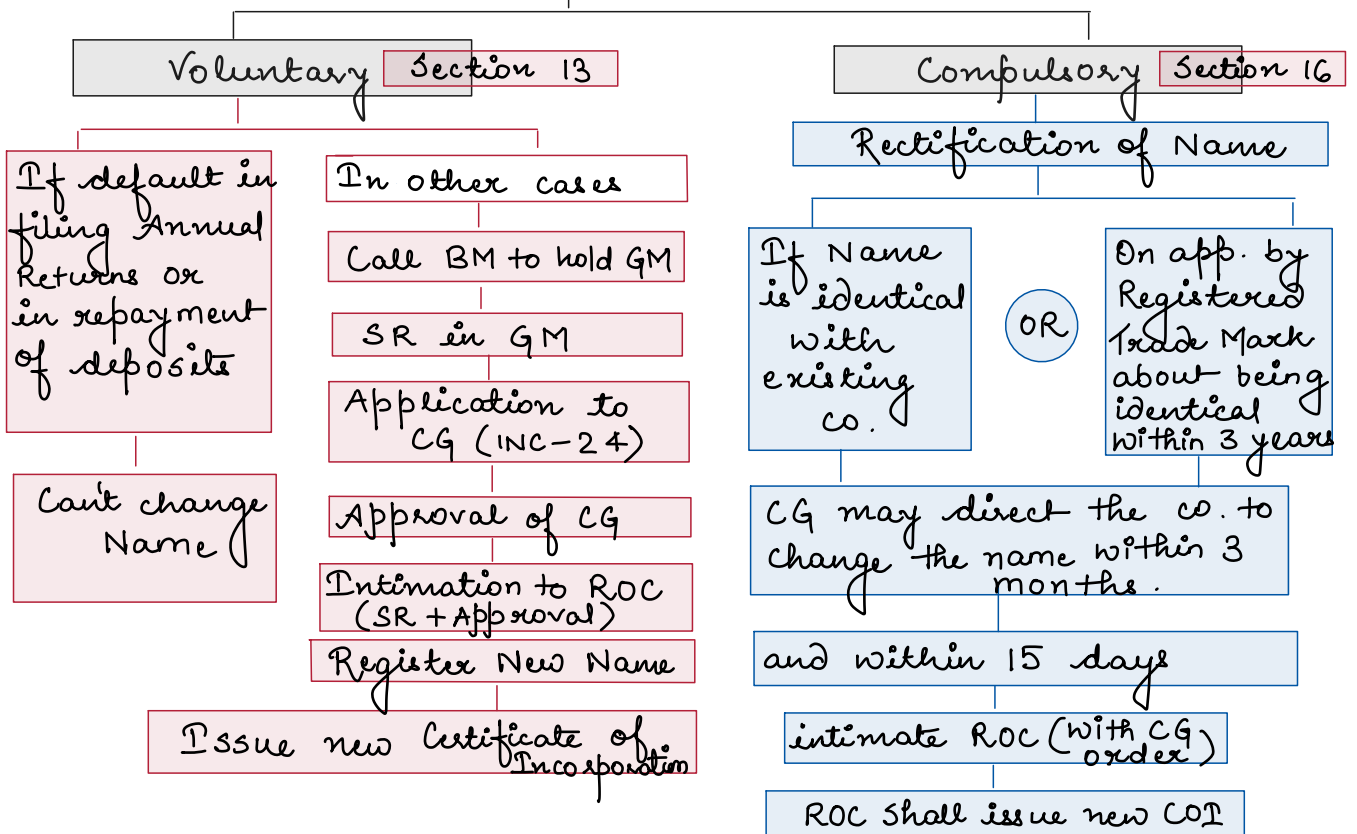 Voluntary Section 13
If default in
filing Annual
Returns or
in repayment
of deposits
Can't change
Name
In other cases
Call BM to hold GM
SR in GM
Application to
CG (INC-24)
Approval of CG
Intimation to ROC
(SR + Approval)
Register New Name
Issue new Certificate of
Incorporation
Compulsory Section 16
Rectification of Name
If Name
is identical
with
existing
co.
OR
On app. by
Registered
Trade Mark
about being
identical
within 3 years
CG may direct the co. to
change the name within 3
months.
and within 15 days
intimate ROC (with CG
order)
ROC shall issue new COI